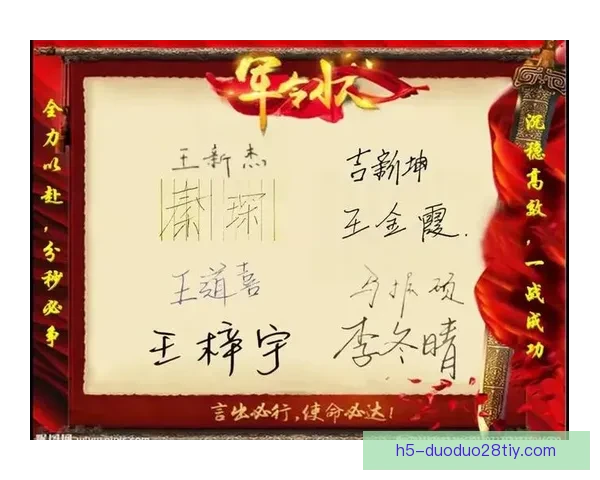 军令状
全力以赴，分秒必争
沉稳高效，一战成功
王新杰
吉新坤
秦琛
王金霞.
王道喜
马振硕
王梓宇
李冬晴
言出必行，使命必达！
h5-duoduo28tiy.com